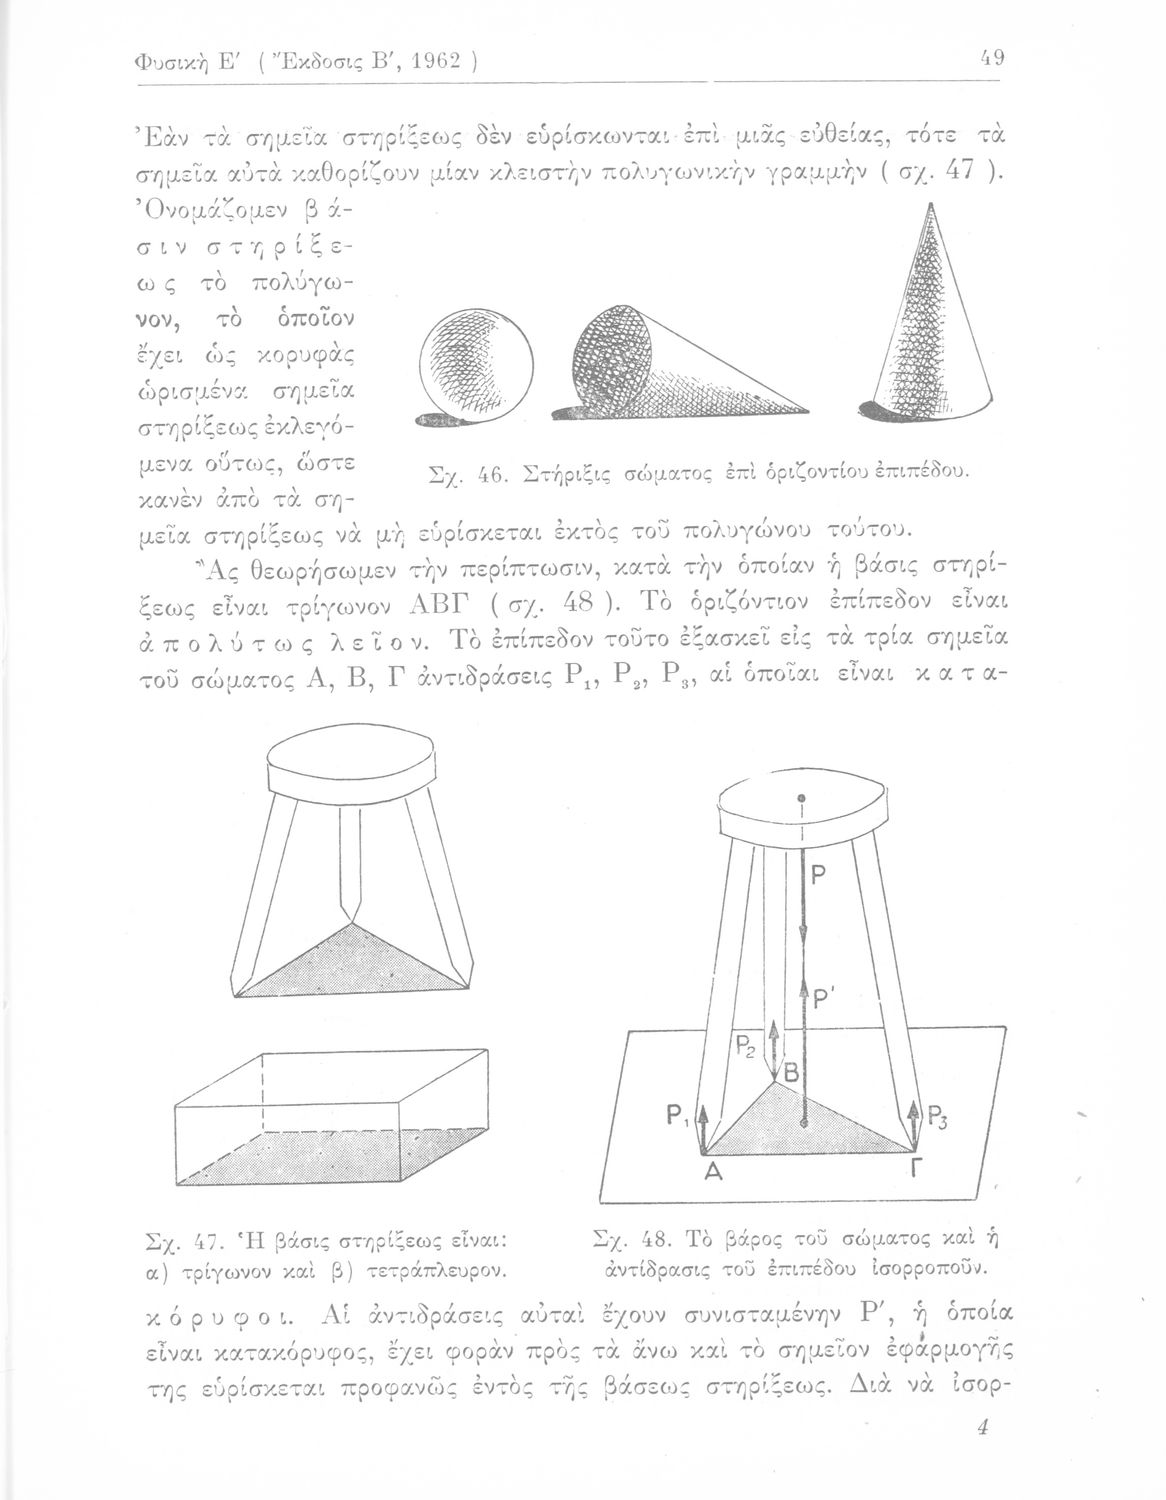 Φυσικὴ Ε′ ( Ἔκδοσις Β′, 1962 )
49
Ἐὰν τὰ σημεῖα στηρίξεως δὲν εὑρίσκωνται ἐπὶ μιᾶς εὐθείας, τότε τὰ
σημεῖα αὐτὰ καθορίζουν μίαν κλειστὴν πολυγωνικὴν γραμμὴν ( σχ. 47 ).
Ὀνομάζομεν β ά-
σ ι ν σ τ η ρ ί ξ ε-
ω ς τὸ πολύγω-
νον, τὸ ὁποῖον
ἔχει ὡς κορυφὰς
ὡρισμένα σημεῖα
στηρίξεως ἐκλεγό-
μενα οὕτως, ὥστε
κανὲν ἀπὸ τὰ ση-
μεῖα στηρίξεως νὰ μὴ εὑρίσκεται ἐκτὸς τοῦ πολυγώνου τούτου.
Σχ. 46. Στήριξις σώματος ἐπὶ ὁριζοντίου ἐπιπέδου.
Ἂς θεωρήσωμεν τὴν περίπτωσιν, κατὰ τὴν ὁποίαν ἡ βάσις στηρί-
ξεως εἶναι τρίγωνον ΑΒΓ ( σχ. 48 ). Τὸ ὁριζόντιον ἐπίπεδον εἶναι
ἀ π ο λ ύ τ ω ς λ ε ῖ ο ν. Τὸ ἐπίπεδον τοῦτο ἐξασκεῖ εἰς τὰ τρία σημεῖα
τοῦ σώματος Α, Β, Γ ἀντιδράσεις P₁, P₂, P₃, αἱ ὁποῖαι εἶναι κ α τ α-
P
P'
P₂
B
P₁
P₃
A
Γ
Σχ. 47. Ἡ βάσις στηρίξεως εἶναι:
α) τρίγωνον καὶ β) τετράπλευρον.
Σχ. 48. Τὸ βάρος τοῦ σώματος καὶ ἡ
ἀντίδρασις τοῦ ἐπιπέδου ἰσορροποῦν.
κ ό ρ υ φ ο ι. Αἱ ἀντιδράσεις αὐταὶ ἔχουν συνισταμένην P′, ἡ ὁποία
εἶναι κατακόρυφος, ἔχει φορὰν πρὸς τὰ ἄνω καὶ τὸ σημεῖον ἐφαρμογῆς
της εὑρίσκεται προφανῶς ἐντὸς τῆς βάσεως στηρίξεως. Διὰ νὰ ἰσορ-
4